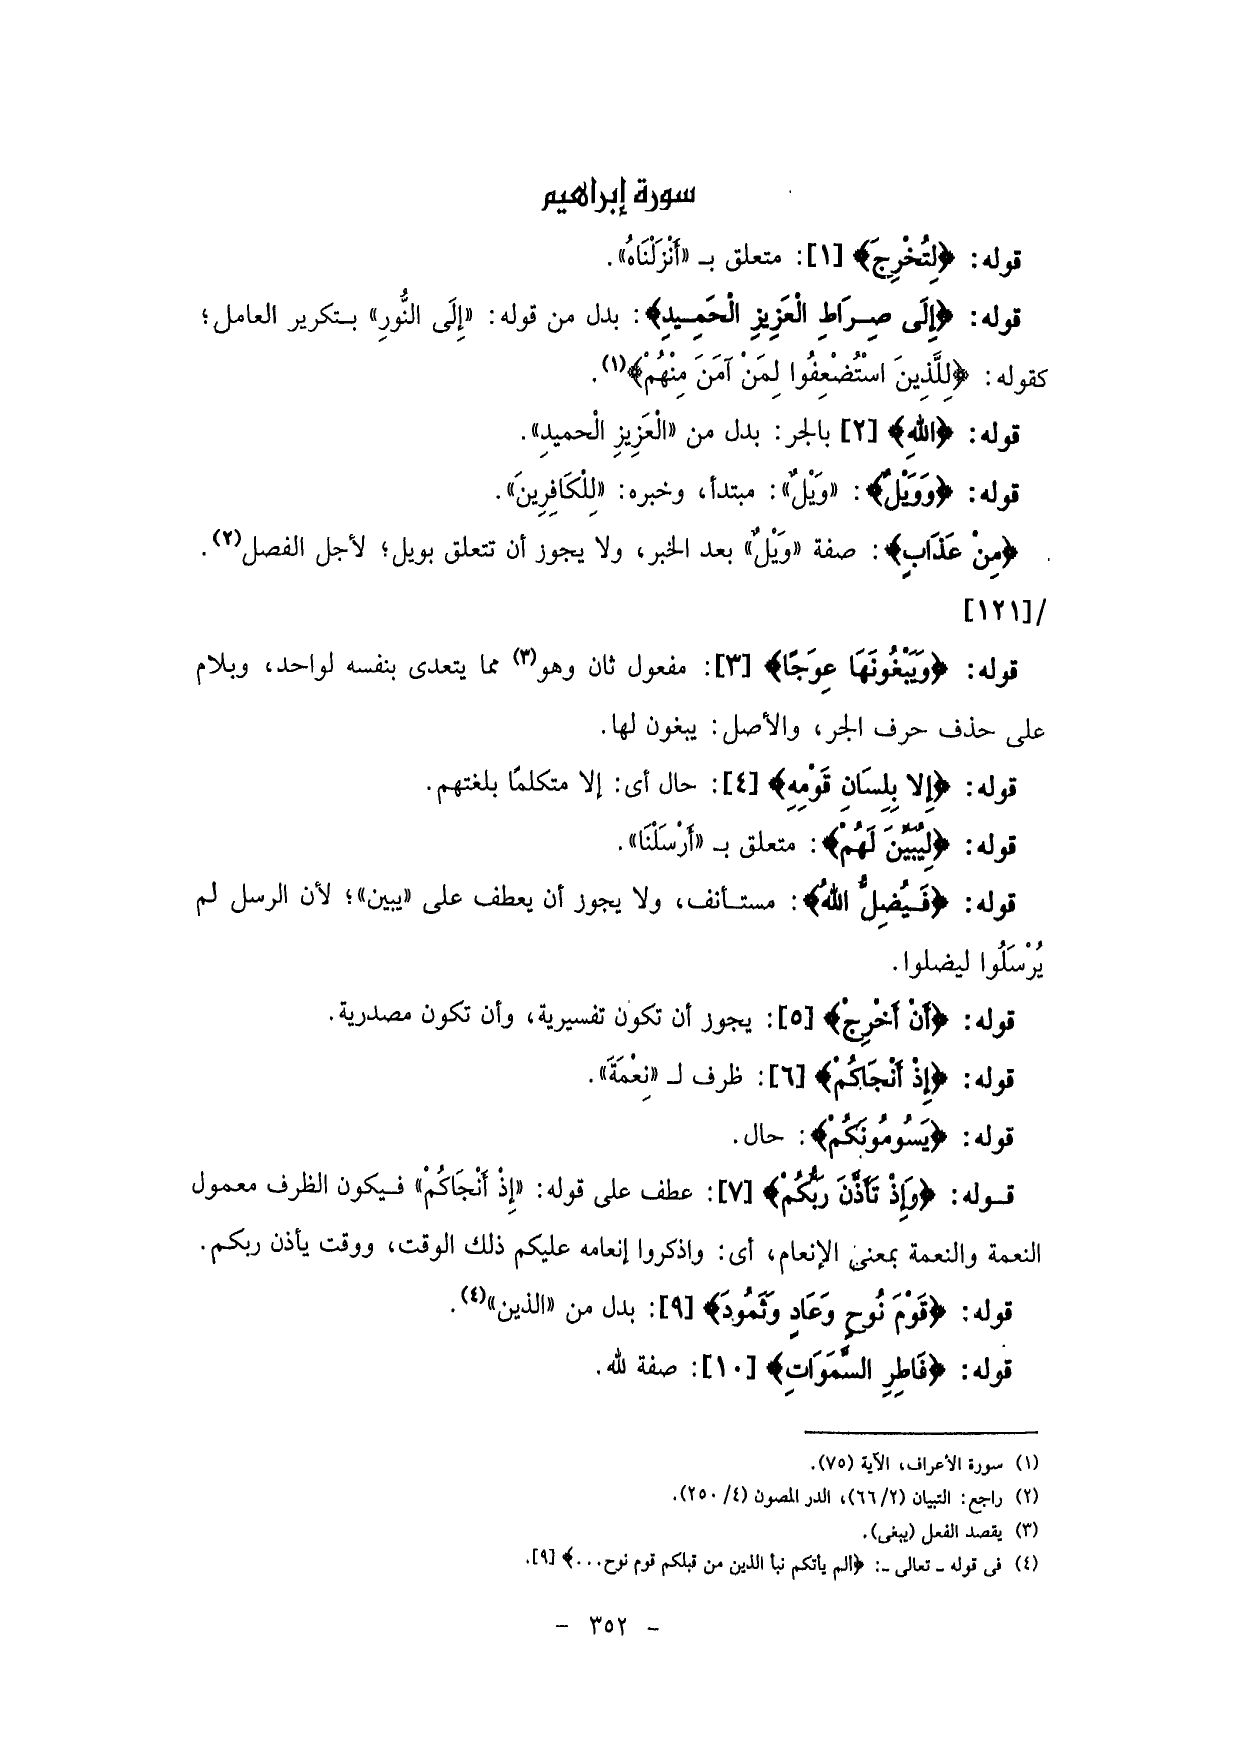 سورة إبراهيم
قوله: ﴿لِتُخْرِجَ﴾ [١]: متعلق بـ «أَنْزَلْنَاهُ».
قوله: ﴿إِلَى صِرَاطِ الْعَزِيزِ الْحَمِيدِ﴾: بدل من قوله: «إِلَى النُّورِ» بتكرير العامل؛
كقوله: ﴿لِلَّذِينَ اسْتُضْعِفُوا لِمَنْ آمَنَ مِنْهُمْ﴾(١).
قوله: ﴿اللهِ﴾ [٢] بالجر: بدل من «الْعَزِيزِ الْحميدِ».
قوله: ﴿وَوَيْلٌ﴾: «وَيْلٌ»: مبتدأ، وخبره: «لِلْكَافِرِينَ».
﴿مِنْ عَذَابٍ﴾: صفة «وَيْلٌ» بعد الخبر، ولا يجوز أن تتعلق بويل؛ لأجل الفصل(٢).
/[١٢١]
قوله: ﴿وَيَبْغُونَهَا عِوَجًا﴾ [٣]: مفعول ثان وهو(٣) مما يتعدى بنفسه لواحد، وبلام
على حذف حرف الجر، والأصل: يبغون لها.
قوله: ﴿إِلا بِلِسَانِ قَوْمِهِ﴾ [٤]: حال أى: إلا متكلمًا بلغتهم.
قوله: ﴿لِيُبَيِّنَ لَهُمْ﴾: متعلق بـ «أَرْسَلْنَا».
قوله: ﴿فَيُضِلُّ اللهُ﴾: مستأنف، ولا يجوز أن يعطف على «يبين»؛ لأن الرسل لم
يُرْسَلُوا ليضلوا.
قوله: ﴿أَنْ أَخْرِجْ﴾ [٥]: يجوز أن تكون تفسيرية، وأن تكون مصدرية.
قوله: ﴿إِذْ أَنْجَاكُمْ﴾ [٦]: ظرف لـ «نِعْمَةَ».
قوله: ﴿يَسُومُونَكُمْ﴾: حال.
قوله: ﴿وَإِذْ تَأَذَّنَ رَبُّكُمْ﴾ [٧]: عطف على قوله: «إِذْ أَنْجَاكُمْ» فيكون الظرف معمول
النعمة والنعمة بمعنى الإنعام، أى: واذكروا إنعامه عليكم ذلك الوقت، ووقت يأذن ربكم.
قوله: ﴿قَوْمَ نُوحٍ وَعَادٍ وَثَمُودَ﴾ [٩]: بدل من «الذين»(٤).
قوله: ﴿فَاطِرِ السَّمَوَاتِ﴾ [١٠]: صفة لله.
(١) سورة الأعراف، الآية (٧٥).
(٢) راجع: التبيان (٢/٦٦)، الدر المصون (٤/ ٢٥٠).
(٣) يقصد الفعل (يبغى).
(٤) فى قوله - تعالى -: ﴿الم يأتكم نبأ الذين من قبلكم قوم نوح...﴾ [٩].
- ٣٥٢ -